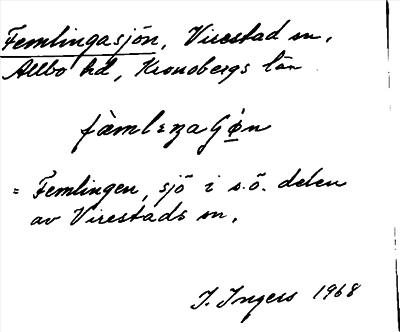 Femlingasjön, Virestad sn,
Allbo hd, Kronobergs län
= Femlingen, sjö i s.ö. delen
av Virestads sn,
I. Ingers 1968